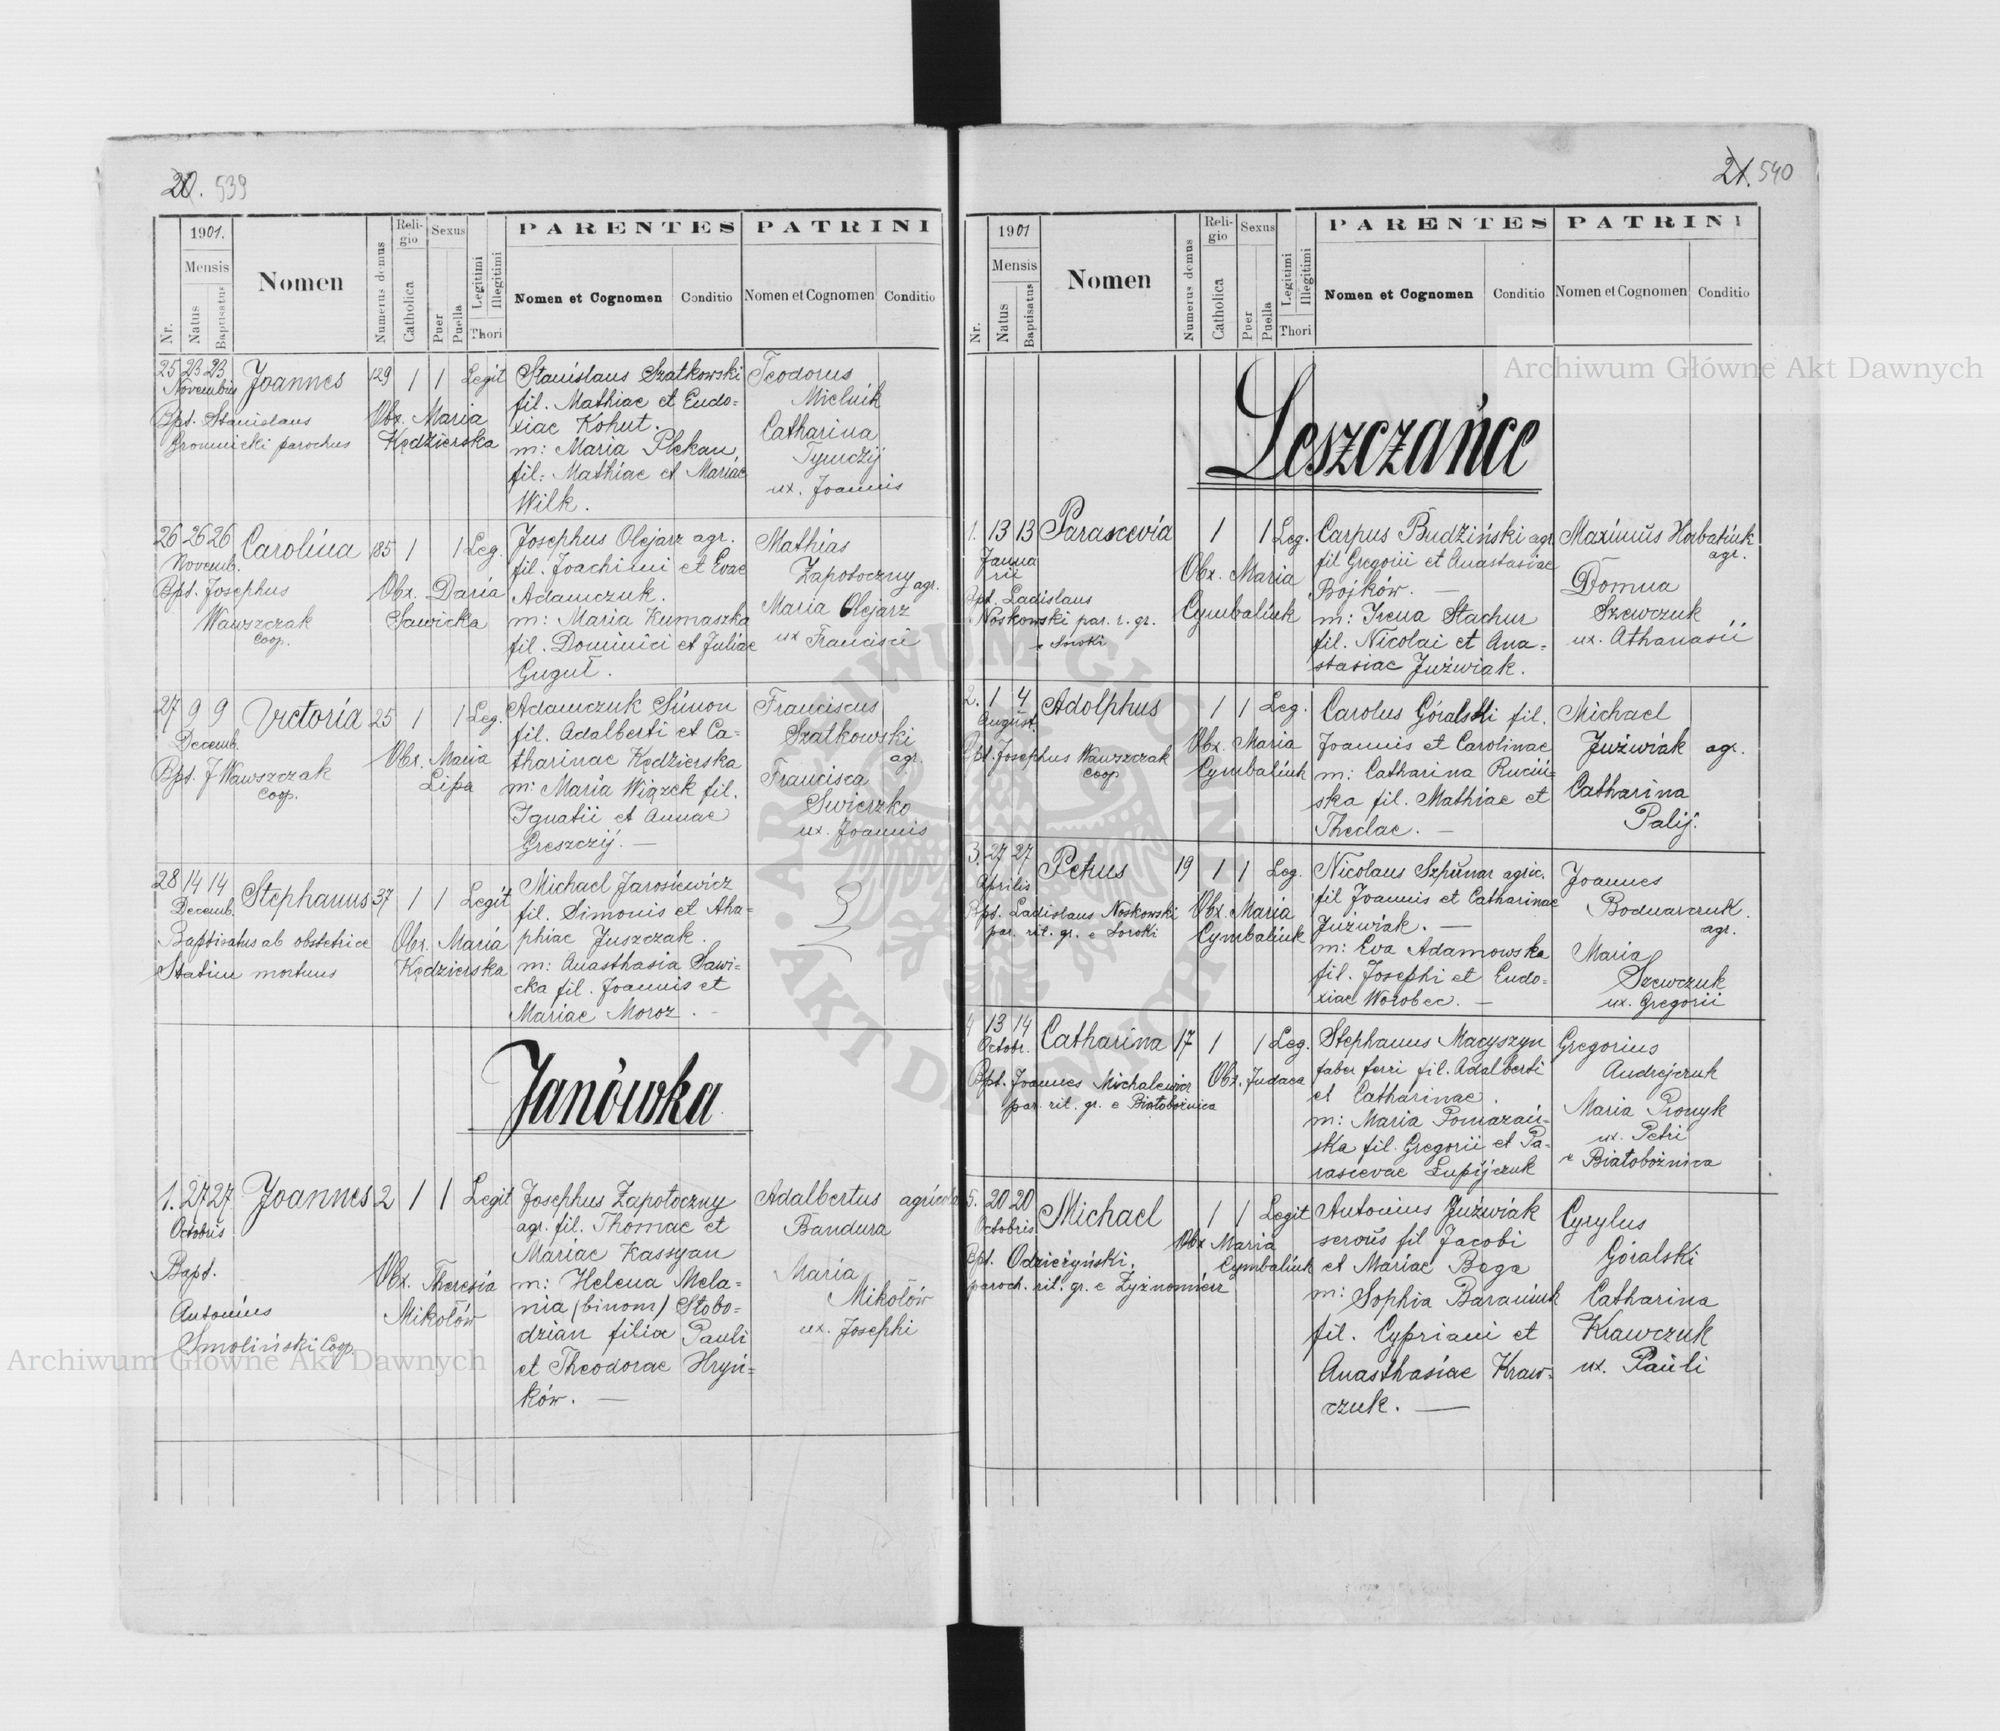 20. 539
1901.
Mensis
Nr.
Natus
Baptisatus
Nomen
Numerus domus
Reli-
gio
Catholica
Sexus
Puer
Puella
Legitimi
Illegitimi
Thori
PARENTES
Nomen et Cognomen
Conditio
PATRINI
Nomen et Cognomen
Conditio
25 23 23 Joannes 129 1 1 Legit
Novembris
Bpt. Stanislaus
Gromnicki parochus
Obx. Maria
Kędzierska
Stanislaus Szatkowski
fil. Mathiae et Eudo=
xiae Kohut.
m: Maria Plekan
fil: Mathiae et Mariae
Wilk.
Teodorus
Mielnik
Catharina
Tymczij
ux. Joannis
26 26 26 Carolina 185 1 1 Leg.
Novemb.
Bpt. Josephus
Wawszczak
coop.
Obx. Daria
Sawicka
Josephus Olejarz agr.
fil. Joachimi et Evae
Adamczuk.
m: Maria Kumaszka
fil. Dominici et Juliae
Guguł.
Mathias
Zapotoczny agr.
Maria Olejarz
ux Francisci
27 9 9 Victoria 25 1 1 Leg.
Decemb.
Bpt. J Wawszczak
coop.
Obx. Maria
Lipa
Adamczuk Simon
fil. Adalberti et Ca=
tharinae Kędzierska
m: Maria Wiązek fil.
Ignatii et Annae
Greszczij. —
Franciscus
Szatkowski
agr.
Francisca
Swierzko
ux. Joannis
28 14 14 Stephanus 37 1 1 Legit
Decemb.
Baptisatus ab obstetrice
Statim mortuus
Obx. Maria
Kędzierska
Michael Jarosiewicz
fil. Simonis et Aha=
phiae Juszczak.
m: Anasthasia Sawi=
cka fil. Joannis et
Mariae Moroz. -
Janówka
1. 27 27 Joannes 2 1 1 Legit
Octobris
Bapt.
Antonius
Smoliński Coop.
Obx. Theresia
Mikołów
Josephus Zapotoczny
agr. fil. Thomae et
Mariae Kassyan
m: Helena Mela=
nia (binom) Słobo=
dzian filia Pauli
et Theodorae Hryń=
ków. —
Adalbertus agricola
Bandura
Maria
Mikołów
ux. Josephi
Archiwum Główne Akt Dawnych
21. 540
1901
Mensis
Nr.
Natus
Baptisatus
Nomen
Numerus domus
Reli-
gio
Catholica
Sexus
Puer
Puella
Legitimi
Illegitimi
Thori
PARENTES
Nomen et Cognomen
Conditio
PATRINI
Nomen et Cognomen
Conditio
Archiwum Główne Akt Dawnych
Leszczańce
1. 13 13 Parascevia 1 1 Leg.
Janua
rii
Bpt. Ladislaus
Noskowski par. r. gr.
e Soroki
Obx. Maria
Cymbaliuk
Carpus Budziński agr
fil Gregorii et Anastasiae
Bojków. —
m: Irena Stachur
fil. Nicolai et Ana=
stasiae Juźwiak.
Maximus Horbatiuk
agr.
Domna
Szewczuk
ux. Athanasii
2. 1 4 Adolphus 1 1 Leg.
August.
Bpt. Josephus Wawszczak
coop
Obx. Maria
Cymbaliuk
Carolus Góralski fil.
Joannis et Carolinae
m: Catharina Ruciń=
ska fil. Mathiae et
Theclae. —
Michael
Juźwiak agr.
Catharina
Palij.
3. 27 27 Petrus 19 1 1 Leg.
Aprilis
Bpt. Ladislaus Noskowski
par. rit. gr. e Soroki
Obx. Maria
Cymbaliuk
Nicolaus Szpunar agric.
fil Joannis et Catharinae
Juźwiak. —
m: Eva Adamowska
fil. Josephi et Eudo=
xiae Worobec. —
Joannes
Bodnarczuk.
agr.
Maria
Szewczuk
ux. Gregorii
4 13 14 Catharina 17 1 1 Leg.
Octobr.
Bpt. Joannes Michalewicz
par. rit. gr. e Białobożnica
Obx. Judaea
Stephanus Macyszyn
faber ferri fil. Adalberti
et Catharinae.
m: Maria Pomazań=
ska fil. Gregorii et Pa=
rascevae Łupijczuk
Gregorius
Andrejczuk
Maria Pronyk
ux. Petri
e Białobożnica
5. 20 20 Michael 1 1 Legit
Octobris
Bpt. Odzieżyński.
paroch. rit. gr. e Żyznomierz
Obx Maria
Cymbaliuk
Antonius Juźwiak
servus fil Jacobi
et Mariae Boga
m: Sophia Baraniuk
fil. Cypriani et
Anasthasiae Kraw=
czuk. —
Cyrylus
Góralski
Catharina
Krawczuk
ux. Pauli
ARCHIWUM GŁÓWNE · AKT DAWNYCH ·